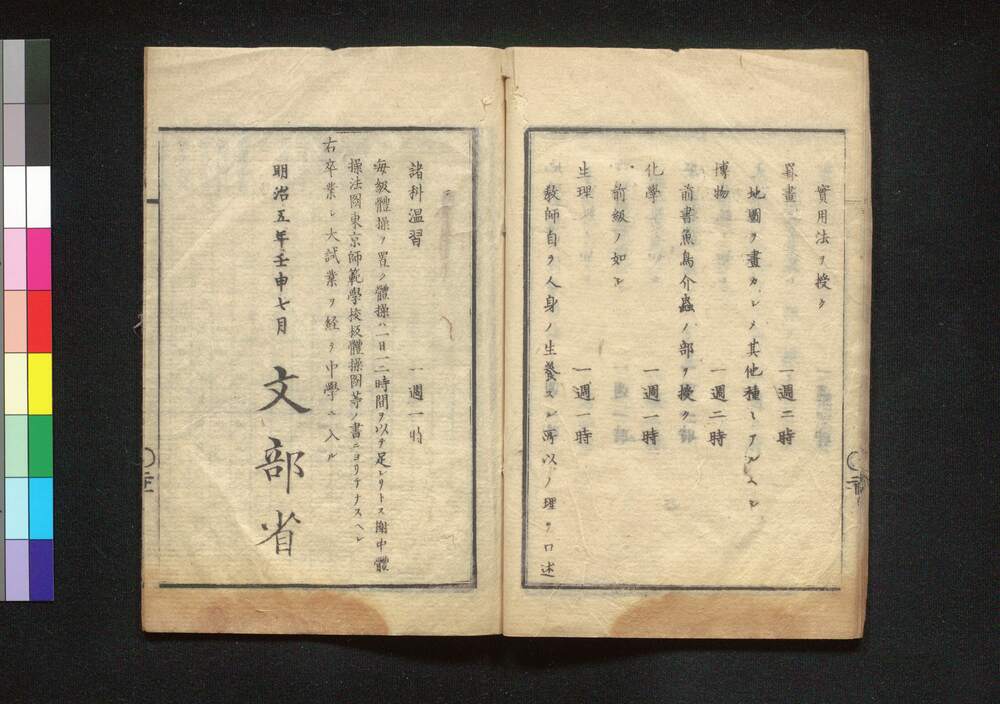 實用法ヲ授ク
罫畫　一週二時
地圖ヲ畫カシメ其他種々アルヘシ
博物　一週二時
前書魚鳥介蟲ノ部ヲ授ク
化學　一週一時
前級ノ如シ
生理　一週一時
教師自ラ人身ノ生養スル所以ノ理ヲ口述
ス
諸科温習　一週一時
毎級體操ヲ置ク體操ハ一日一二時間ヲ以テ足レリトス榭中體
操法圖東京師範學校板體操圖等ノ書ニヨリテナスヘシ
右卒業シ大試業ヲ経テ中學ニ入ル
明治五年壬申七月　文部省